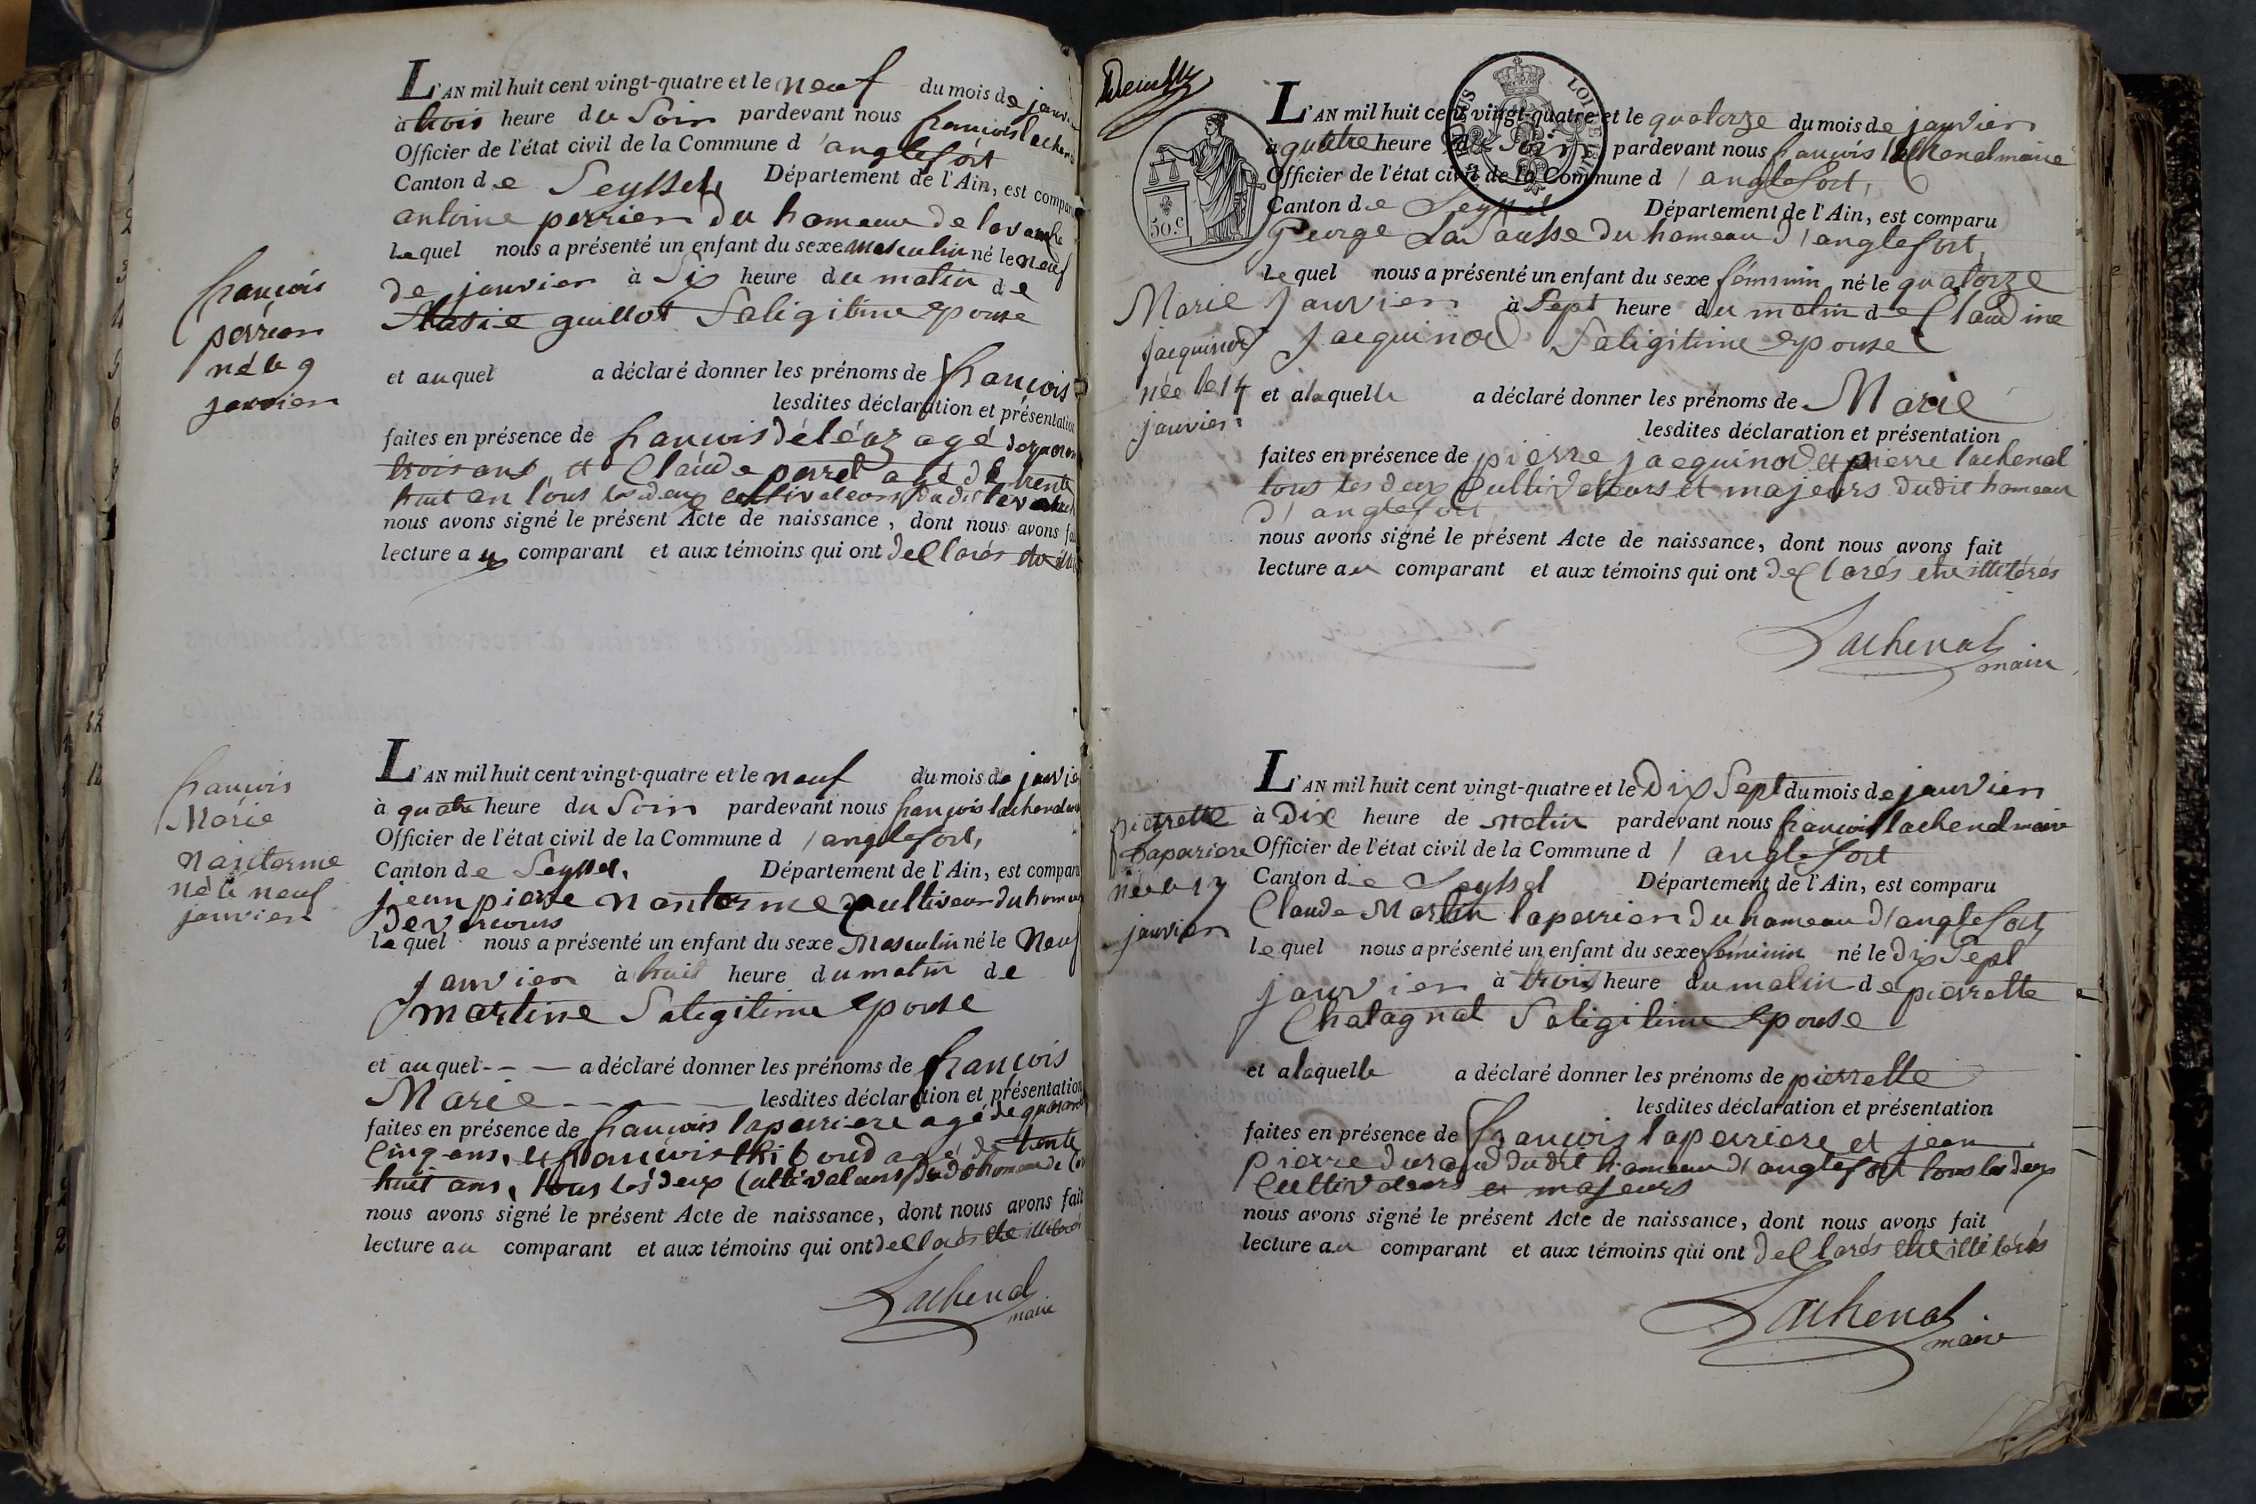 L'AN mil huit cent vingt-quatre et le neuf du mois de janvier
à trois heure du Soir pardevant nous françois lachenal
Officier de l'état civil de la Commune d'anglefort
Canton de Seyssel Département de l'Ain, est comparu
antoine perrier du hameau de
lequel nous a présenté un enfant du sexe masculin né le neuf
de janvier à Six heure du matin de
guillot Saligitime epouse
et auquel a déclaré donner les prénoms de françois
lesdites déclaration et présentation
faites en présence de françois déléaz agé de
trois ans et Claude perret agé de trente
huit an tous les deux cultivateurs dudit
nous avons signé le présent Acte de naissance, dont nous avons fait
lecture au comparant et aux témoins qui ont declarés
françois
perrier
né le 9
janvier
L'AN mil huit cent vingt-quatre et le neuf du mois de janvier
à quatre heure du Soir pardevant nous françois lachenal
Officier de l'état civil de la Commune d'anglefort,
Canton de Seyssel, Département de l'Ain, est comparu
jean pierre nanterme Cultivateur du hameau
lequel nous a présenté un enfant du sexe Masculin né le Neuf
janvier à huit heure du matin de
martine Saligitime epouse
et auquel - - — a déclaré donner les prénoms de françois
Marie — — — lesdites déclaration et présentation
faites en présence de françois laperriere agé de quarante
Cinq ans, et françois thiboud agé de trente
huit ans, tous les deux Cultivateurs dudit hameau de
nous avons signé le présent Acte de naissance, dont nous avons fait
lecture au comparant et aux témoins qui ont declarés etre
Lachenal
maire
françois
Marie
Nanterme
né le neuf
janvier
L'AN mil huit cent vingt-quatre et le quatorze du mois de janvier
à quatre heure du Soir pardevant nous françois lachenal maire
Officier de l'état civil de la Commune d'anglefort,
Canton de Seyssel Département de l'Ain, est comparu
George Lasausse du hameau d'anglefort,
lequel nous a présenté un enfant du sexe féminin né le quatorze
janvier à Sept heure du matin de Claudine
jacquinod Saligitime epouse
et alaquelle a déclaré donner les prénoms de Marie
lesdites déclaration et présentation
faites en présence de pierre jacquinod et pierre lachenal
tous les deux Cultivateurs et majeurs dudit hameau
d'anglefort
nous avons signé le présent Acte de naissance, dont nous avons fait
lecture au comparant et aux témoins qui ont declarés etre illitérés
Lachenal
maire
50.c
LOI
Marie
jacquinod
née le 14
janvier
L'AN mil huit cent vingt-quatre et le Dix Sept du mois de janvier
à Dix heure de Matin pardevant nous françois lachenal maire
Officier de l'état civil de la Commune d'anglefort
Canton de Seyssel Département de l'Ain, est comparu
Claude Martin laperrier du hameau d'anglefort
lequel nous a présenté un enfant du sexe féminin né le dix Sept
janvier à trois heure du matin de pierrette
Chatagnat Saligitime epouse
et alaquelle a déclaré donner les prénoms de pierrette
lesdites déclaration et présentation
faites en présence de françois laperriere et jean
pierre durand dudit hameau d'anglefort tous les deux
Cultivateurs et majeurs
nous avons signé le présent Acte de naissance, dont nous avons fait
lecture au comparant et aux témoins qui ont declarés etre illitérés
Lachenal
maire
pierrette
laperriere
née le 17
janvier